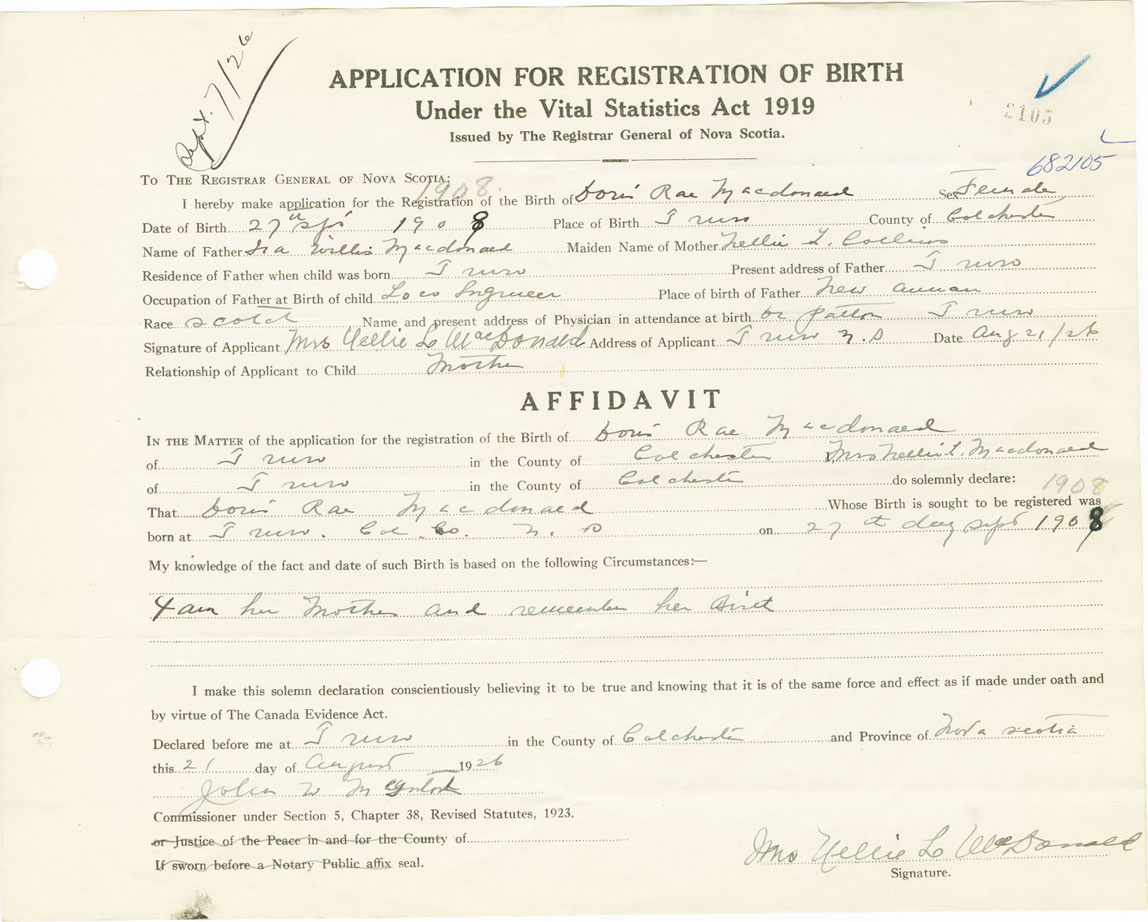 Sept. 7/26
APPLICATION FOR REGISTRATION OF BIRTH
Under the Vital Statistics Act 1919
Issued by The Registrar General of Nova Scotia.
2105
682105
TO THE REGISTRAR GENERAL OF NOVA SCOTIA:
1908.
I hereby make application for the Registration of the Birth of Doris Rae Macdonald Sex Female
Date of Birth 27th Sept 1908 Place of Birth Truro County of Colchester
Name of Father Ira Willis Macdonald Maiden Name of Mother Nellie L. Collins
Residence of Father when child was born Truro Present address of Father Truro
Occupation of Father at Birth of child Loco Engineer Place of birth of Father New annan
Race Scotch Name and present address of Physician in attendance at birth Dr Patton Truro
Signature of Applicant Mrs Nellie L MacDonald Address of Applicant Truro N.S Date Aug 21/26
Relationship of Applicant to Child Mother
AFFIDAVIT
IN THE MATTER of the application for the registration of the Birth of Doris Rae Macdonald
of Truro in the County of Colchester Mrs Nellie L. Macdonald
of Truro in the County of Colchester do solemnly declare:
1908
That Doris Rae Macdonald Whose Birth is sought to be registered was
born at Truro. Col. Co. N. S on 27th day Sept 1908
My knowledge of the fact and date of such Birth is based on the following Circumstances:—
I am her Mother and remember her Birth
I make this solemn declaration conscientiously believing it to be true and knowing that it is of the same force and effect as if made under oath and
by virtue of The Canada Evidence Act.
Declared before me at Truro in the County of Colchester and Province of Nova Scotia
this 21 day of August 1926
John W
Commissioner under Section 5, Chapter 38, Revised Statutes, 1923.
or Justice of the Peace in and for the County of
If sworn before a Notary Public affix seal.
Mrs Nellie L MacDonald
Signature.